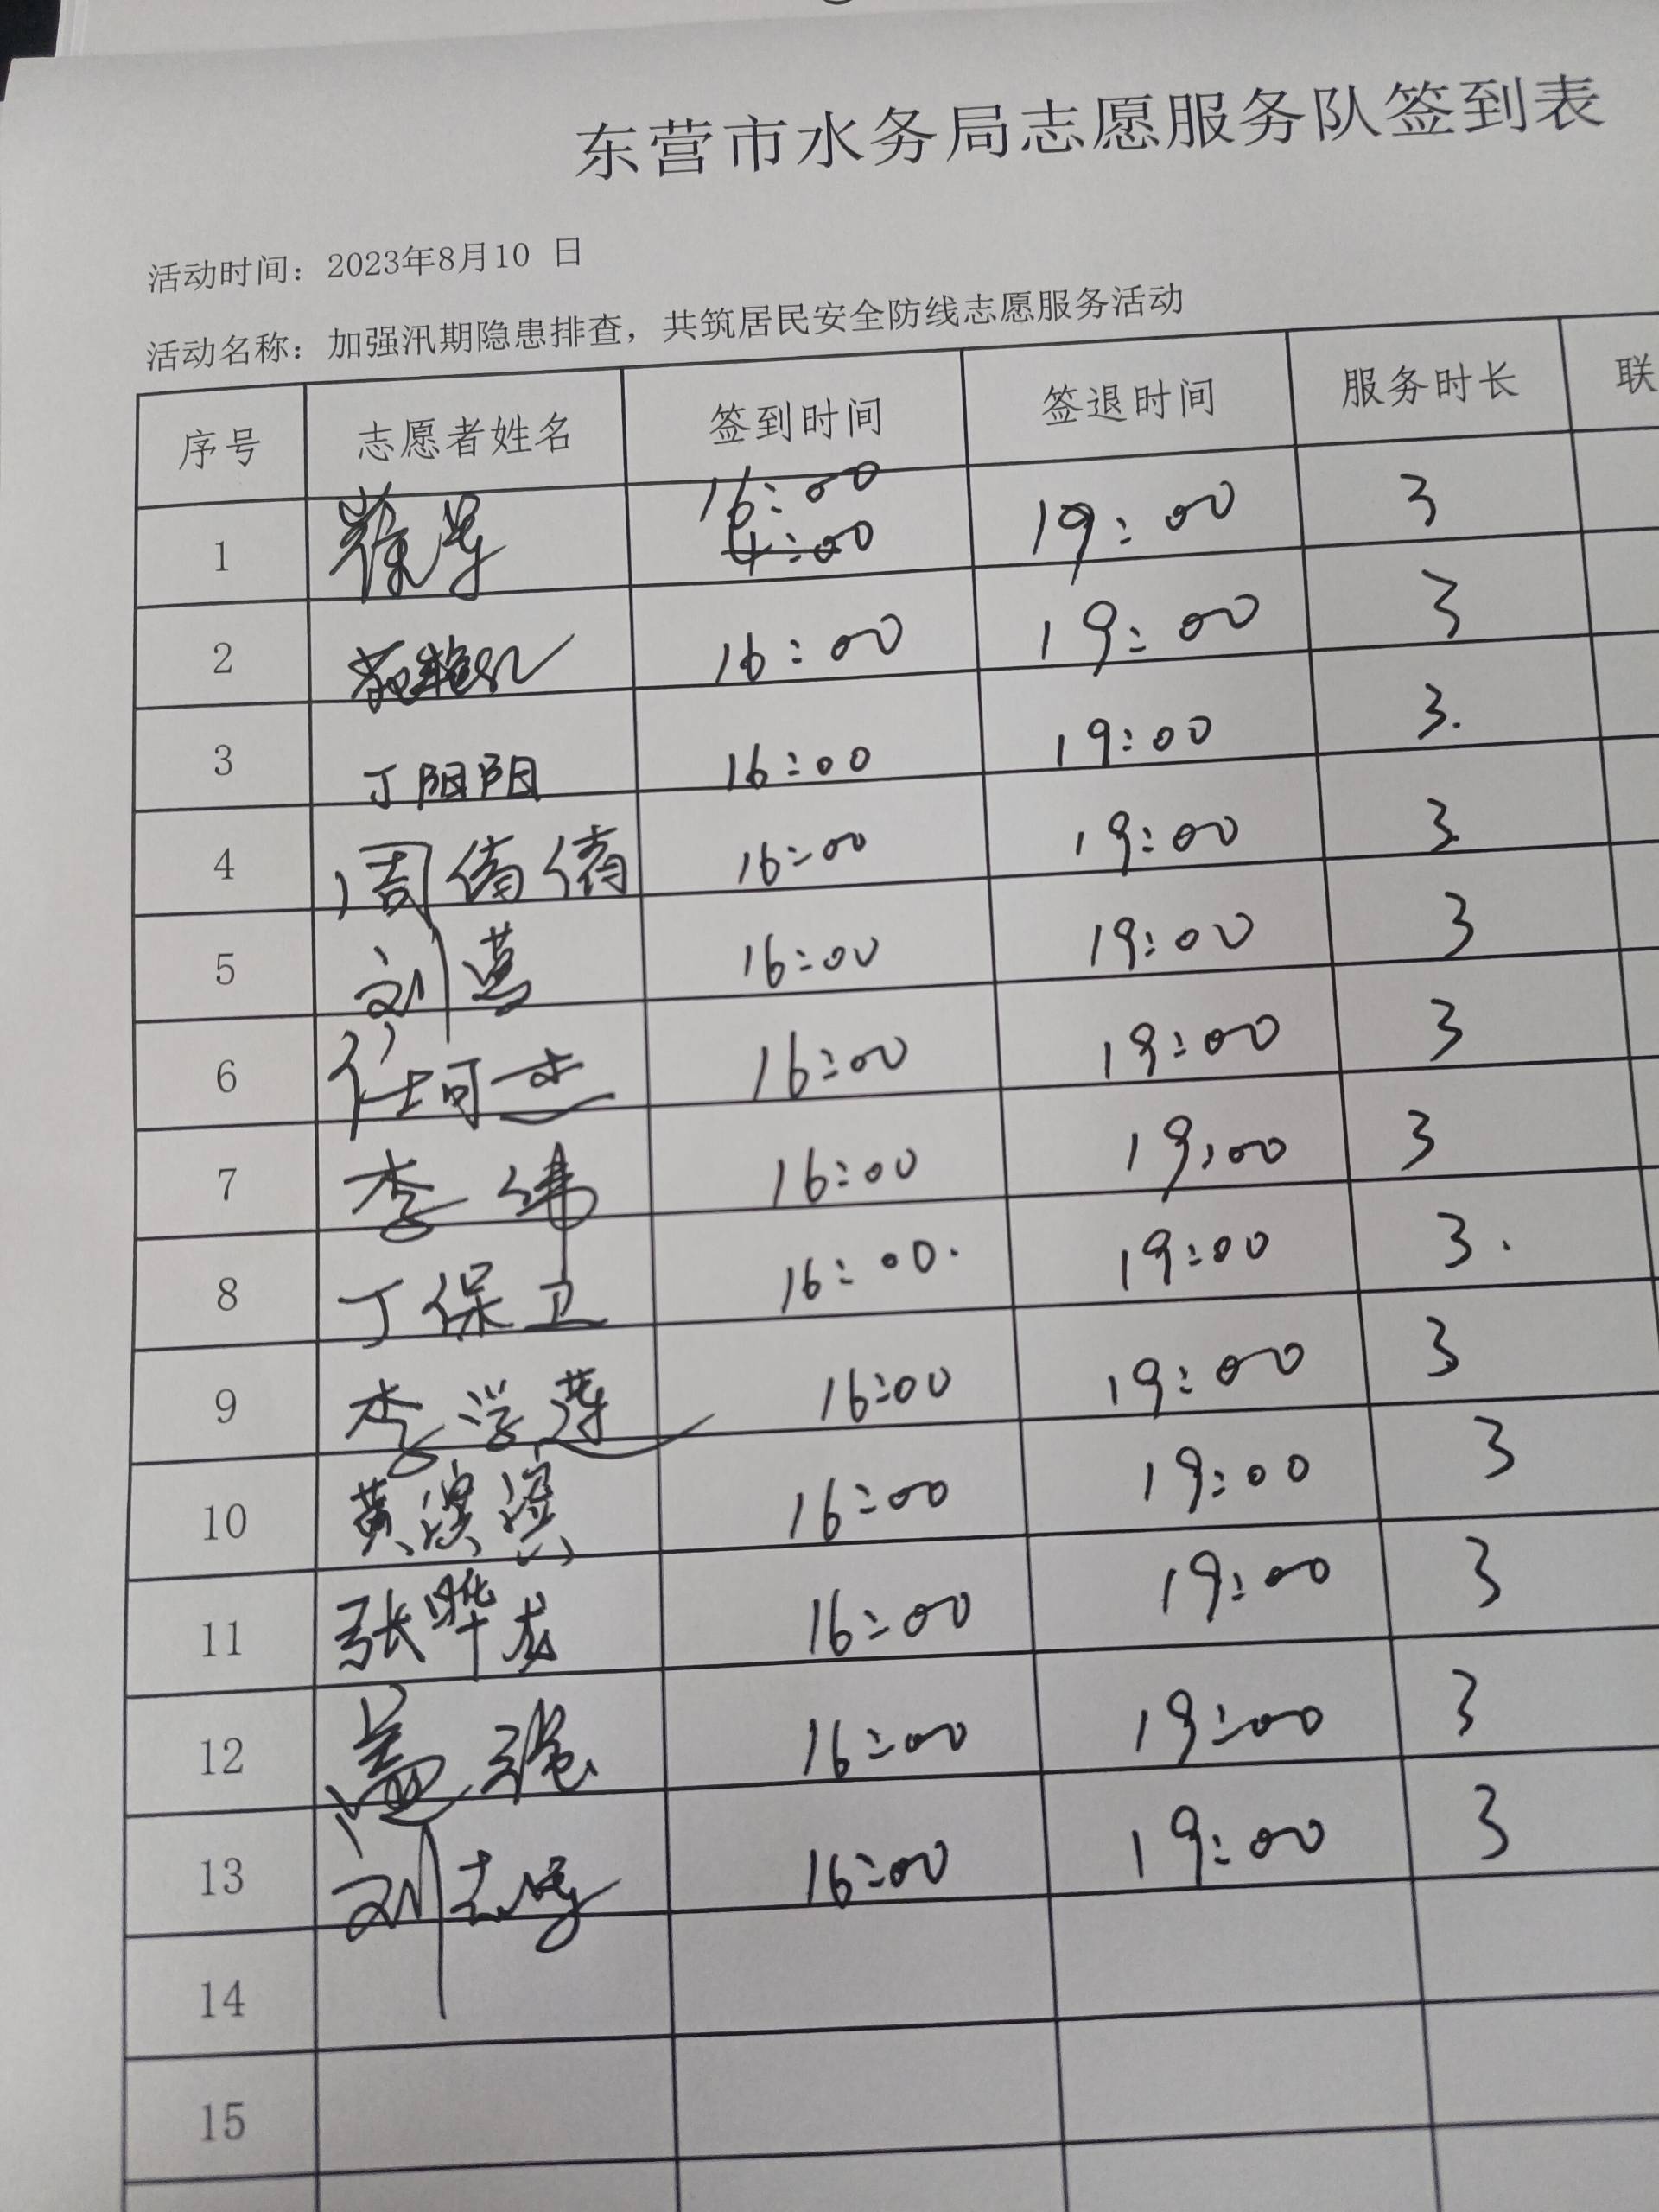 东营市水务局志愿服务队签到表
活动时间：2023年8月10 日
活动名称：加强汛期隐患排查，共筑居民安全防线志愿服务活动
序号 志愿者姓名 签到时间 签退时间 服务时长 联
16:00
1 4:00 19:00 3
2 16:00 19:00 3
3 丁阳阳 16:00 19:00 3.
4 周倩倩 16:00 19:00 3
5 刘 16:00 19:00 3
6 任可 16:00 19:00 3
7 李伟 16:00 19:00 3
8 丁保卫 16:00. 19:00 3.
9 李学莲 16:00 19:00 3
10 黄滨滨 16:00 19:00 3
11 张晔龙 16:00 19:00 3
12 盖强 16:00 19:00 3
13 刘志 16:00 19:00 3
14
15